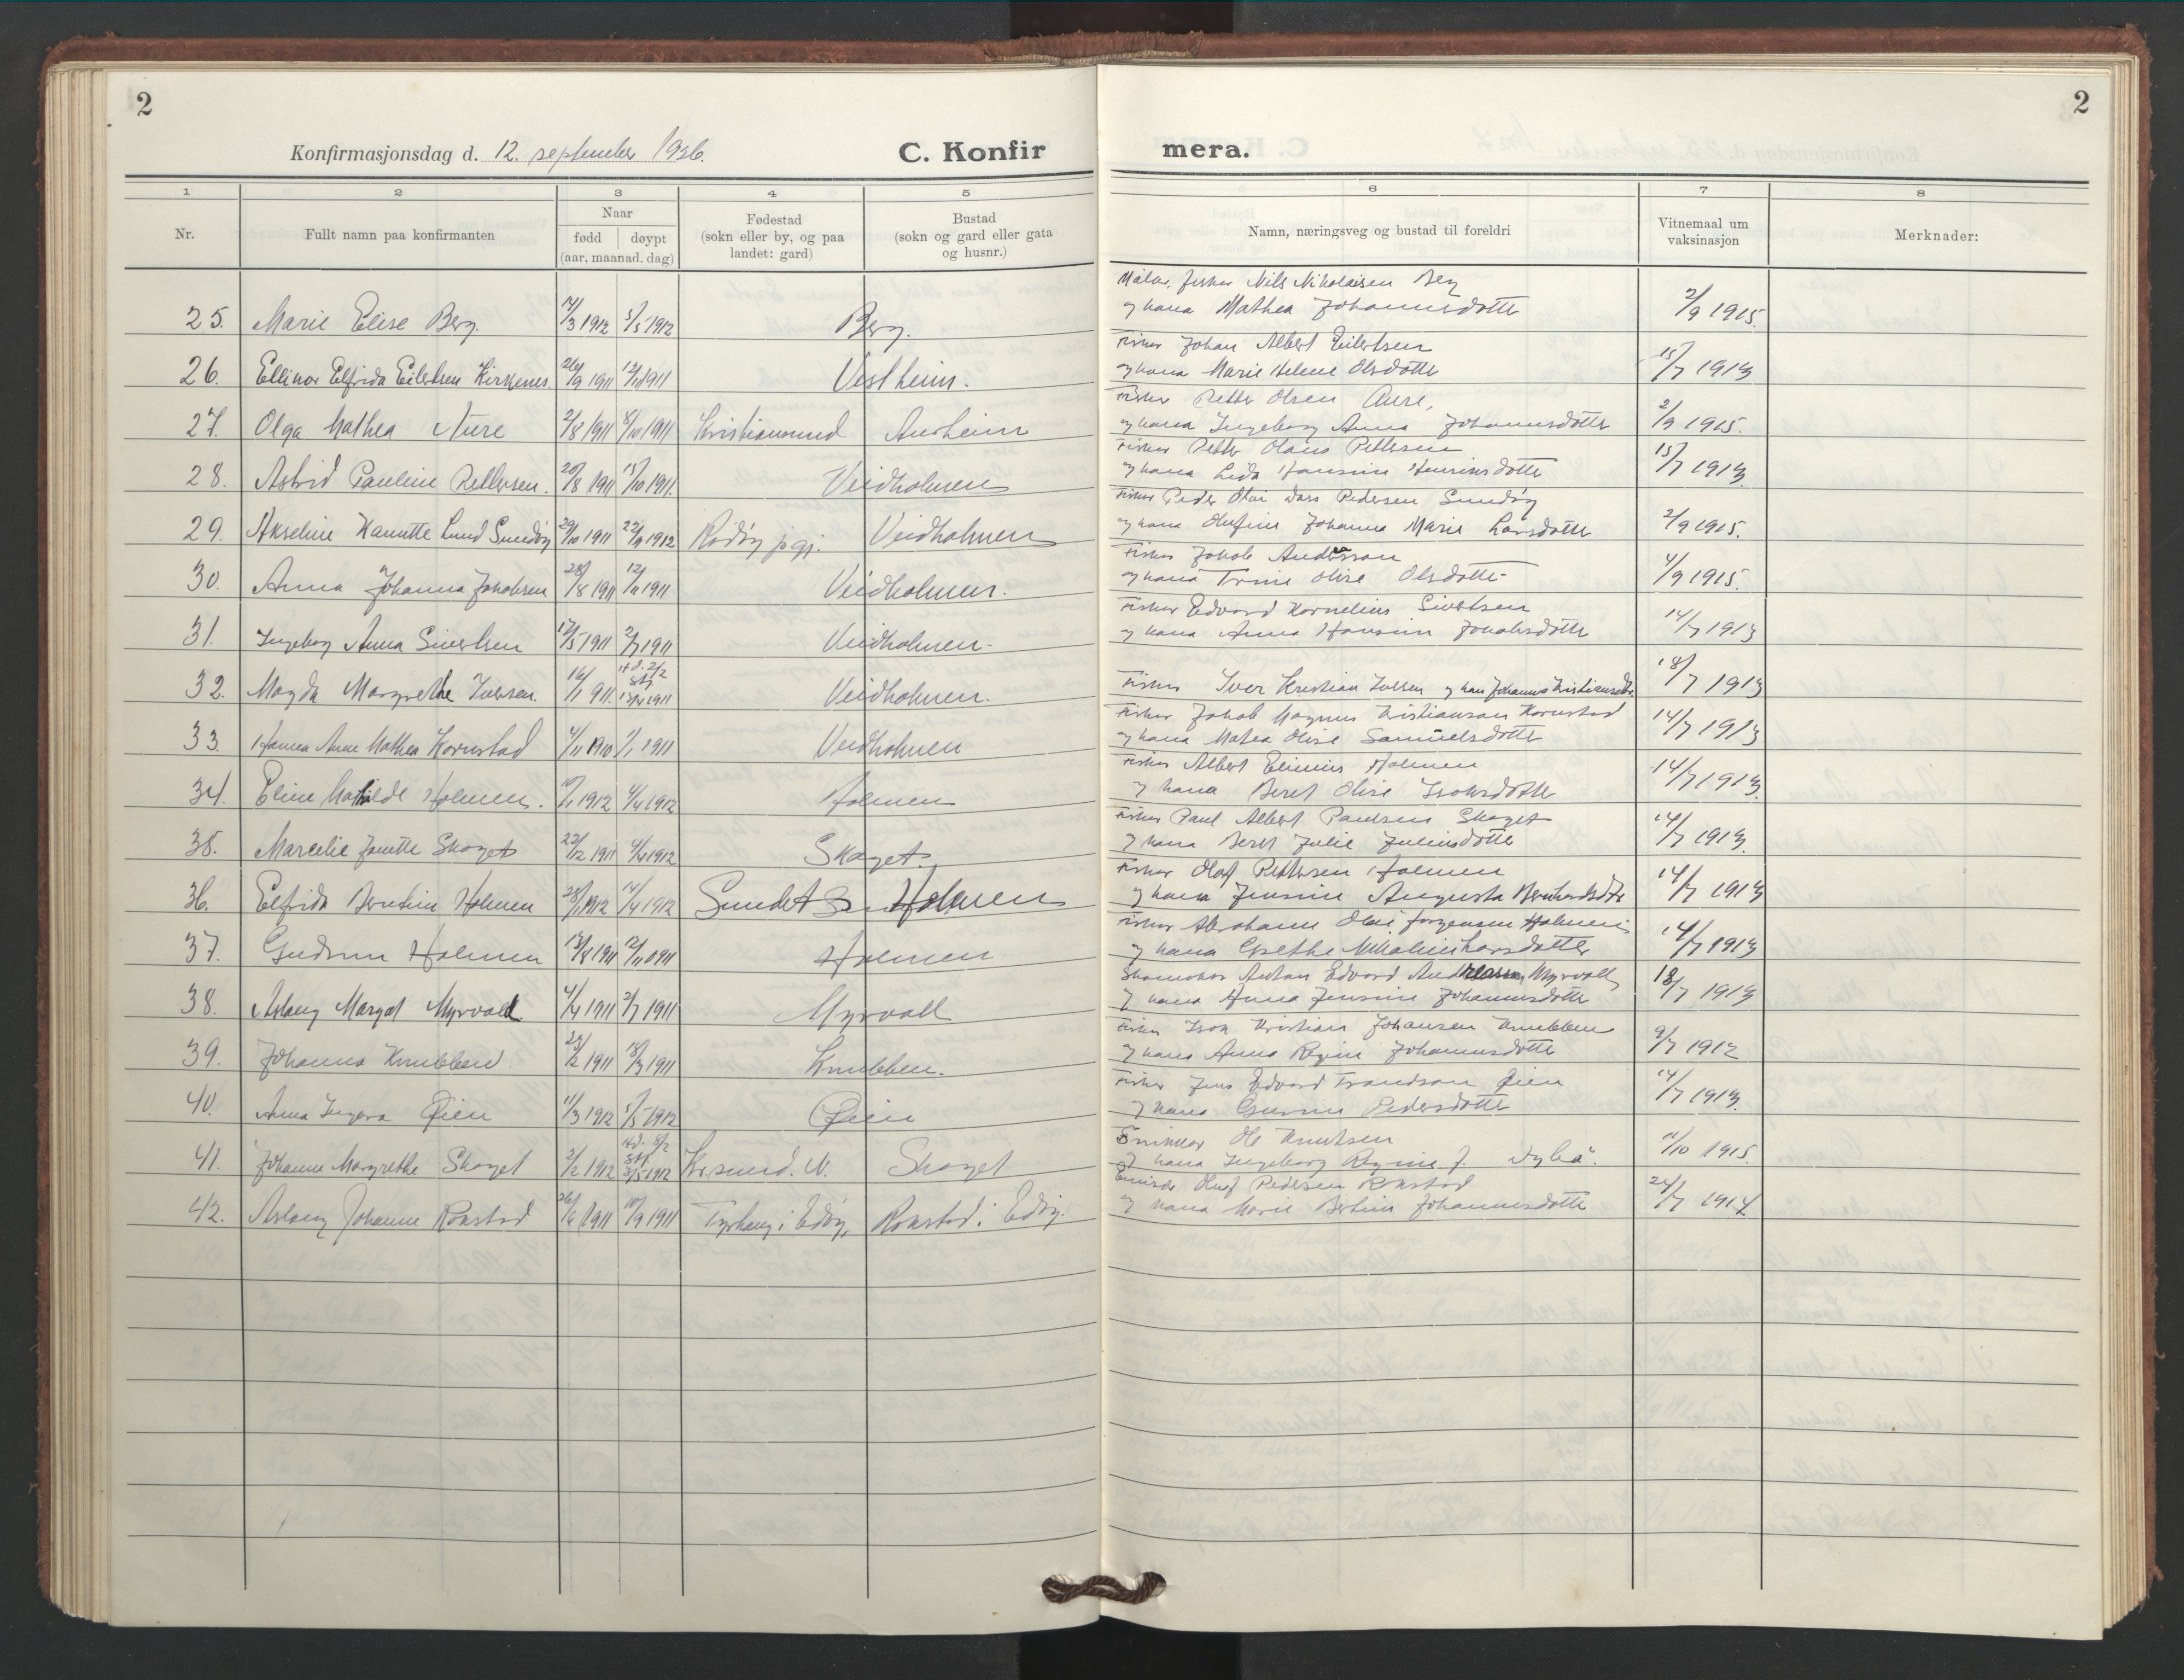 2
Konfirmasjonsdag d. 12. september 1926.
C. Konfir
mera.
2
1 2 3 4 5 6 7 8
Nr.
Fullt namn paa konfirmanten
Naar
fødd døypt
(aar, maanad. dag)
Fødestad
(sokn eller by, og paa
landet: gard)
Bustad
(sokn og gard eller gata
og husnr.)
Namn, næringsveg og bustad til foreldri
Vitnemaal um
vaksinasjon
Merknader:
25. Marie Elise Berg. 14/3 1912 5/5 1912 Berg.
Fisker Nils Nikolaisen Berg
og kona Mathea Johannesdotter 2/9 1915.
26. Ellinor Elfrida Eilertsen Kirknes 26/9 1911 12/11 1911 Vestheim.
Fisker Johan Albert Eilertsen
og kona Marie Helene Olsdotter 15/7 1913
27. Olga Mathea Aure 2/8 1911 8/10 1911 Kristiansund Aurheim
Fisker Petter Olsen Aure,
og kona Ingeborg Anna Johannesdotter 2/9 1915.
28. Astrid Pauline Pettersen. 20/8 1911 15/10 1911. Veidholmen
Fisker Petter Olaus Pettersen
og kona Lida Hansine Henriksdotter 15/7 1913.
29. Akseline Hanette Lund Sundøy 29/10 1911 22/9 1912 Rødøy pgj. Veidholmen
Fisker Peder Olai Dass Pedersen Sundøy
og kona Olufine Johanna Marie Larsdotter 2/9 1915.
30. Anna Johanna Jakobsen 28/8 1911 12/11 1911 Veidholmen.
Fisker Jakob Andersson
og kona Trine Olise Olsdotter 4/9 1915.
31. Ingeborg Anna Sivertsen 17/5 1911 2/7 1911 Veidholmen.
Fisker Edvard Kornelius Sivertsen
og kona Anna Hansine Jakobsdotter 14/7 1913
32. Magda Margrethe Iversen. 16/1 1911. Hd. 2/2 Stf. 13/4 1911 Veidholmen.
Fisker Iver Kristian Iversen og kona Johanna Kristiansdtr. 18/7 1913
33. Hanna Anne Mathea Kornstad 4/11 1910 1/1 1911 Veidholmen
Fisker Jakob Magnus Kristianson Kornstad
og kona Matea Olise Samuelsdotter 14/7 1913
34. Eline Mathilde Holmen. 10/1 1912 4/4 1912 Holmen
Fisker Albert Elinius Holmen
og kona Beret Olise Isaksdotter 14/7 1913.
35. Marcelie Janette Skaget 22/12 1911 4/4 1912 Skaget.
Fisker Paul Albert Paulsen Skaget
og kona Beret Julie Juliusdotter 14/7 1913.
36. Elfrida Berntine Holmen 28/1 1912 14/4 1912 Sundet Holmen
Fisker Olaf Pettersen Holmen
og kona Jensine Augusta Bernhardsdtr 14/7 1913
37. Gudrun Holmen 13/8 1911 12/11 1911 Holmen
Fisker Abraham Olai Jørgensen Holmen
og kona Grethe Nikoline Larsdotter 14/7 1913
38. Aslaug Margot Myrvold 4/4 1911 2/7 1911 Myrvoll
Skomaker Anton Edvard Andreassen Myrvoll
og kona Anna Jensine Johannesdotter 18/7 1913
39. Johanna Knubben 23/2 1911 18/3 1911 Knubben.
Fisker Isak Kristian Johansen Knubben
og kona Anna Regine Johannesdotter 9/7 1912
40. Anna Ingvara Øien 11/3 1912 5/5 1912 Øien
Fisker Jens Edvard Trondson Øien
og kona Gurine Pedersdotter 14/7 1913.
41. Johanne Margrethe Skaget 2/2 1912 Hd. 8/2 Stf. 27/5 1912 Kr.sund. N. Skaget
Snikkar Ole Knutsen
og kona Ingeborg Regine J. Dylø. 11/10 1915.
42. Aslaug Johanne Rokstad 26/6 1911 10/9 1911 Tyrhaug i Edøy, Rokstad i Edøy.
Olaf Pedersen Rokstad
og kona Marie Bertine Johannesdotter 24/7 1914